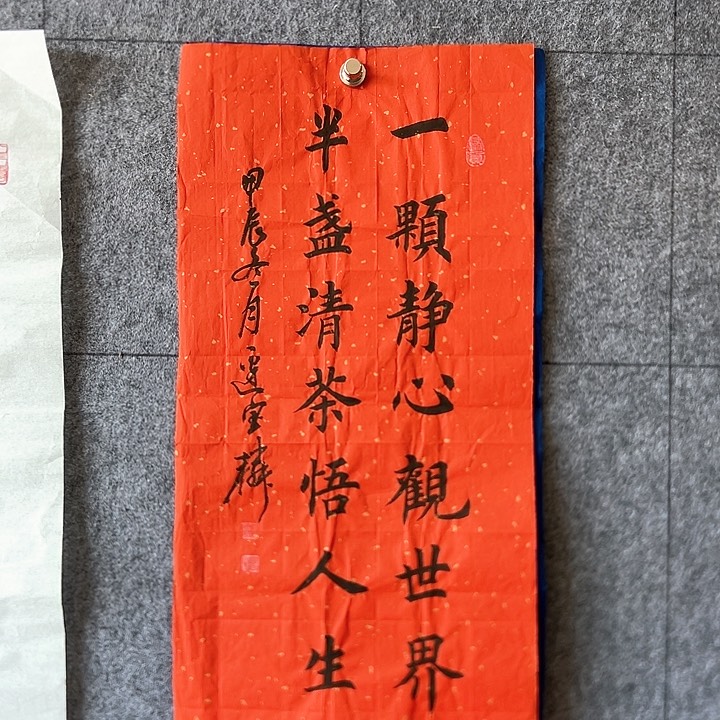 一顆静心觀世界
半盏清茶悟人生
甲辰冬月